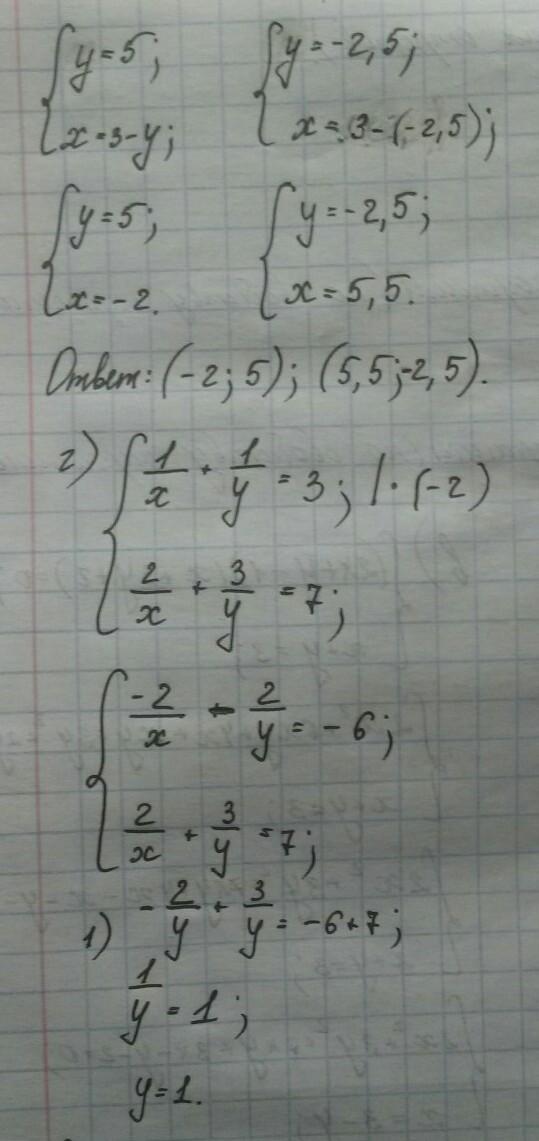 { y=5; { y=-2,5;
x=3-y; x=3-(-2,5);
{ y=5; { y=-2,5;
x=-2. x=5,5.
Ответ: (-2; 5); (5,5;-2,5).
г) { 1/x + 1/y = 3; |·(-2)
2/x + 3/y = 7;
{ -2/x - 2/y = -6;
2/x + 3/y = 7;
1) -2/y + 3/y = -6+7;
1/y = 1;
y=1.